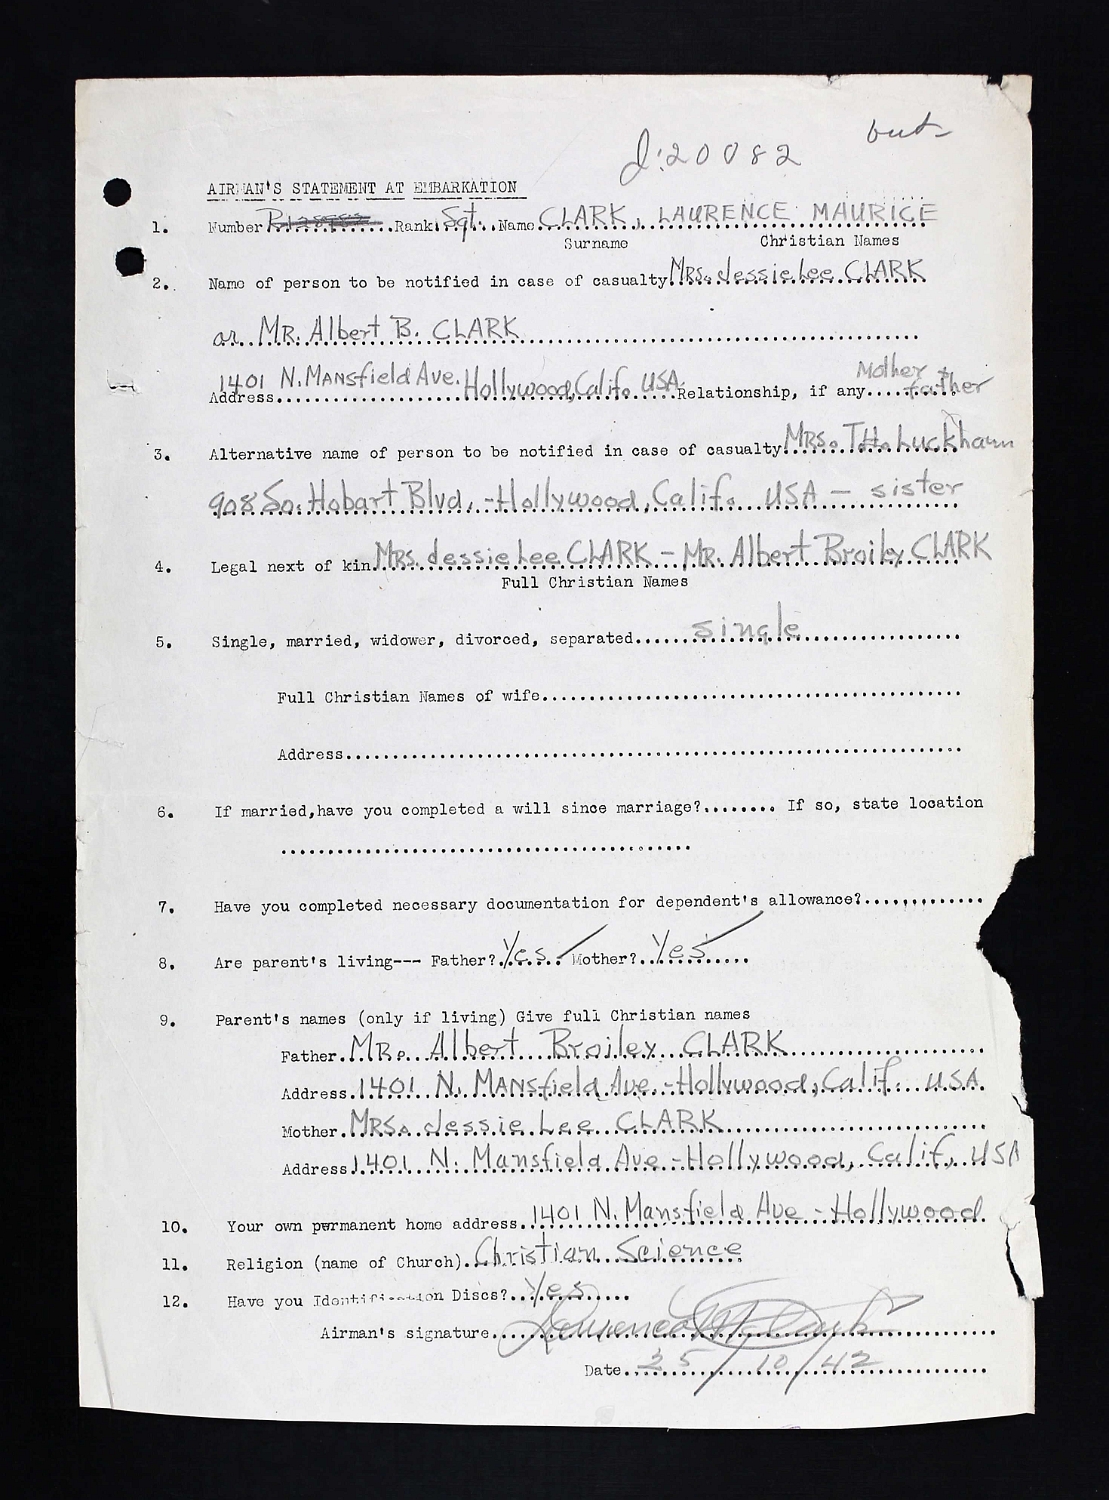 out
J.20082
AIRMAN'S STATEMENT AT EMBARKATION
1. Number.............Rank.Sgt...Name.CLARK, LAURENCE MAURICE
Surname Christian Names
2. Name of person to be notified in case of casualty.Mrs. Jessie Lee CLARK
or MR. Albert B. CLARK
Mother +
Address 1401 N. Mansfield Ave. Hollywood, Calif. USA Relationship, if any....father
3. Alternative name of person to be notified in case of casualty Mrs. T.H. Luckham
908 So. Hobart Blvd, -Hollywood, Calif. USA - sister
4. Legal next of kin Mrs. Jessie Lee CLARK - Mr. Albert Broiley CLARK
Full Christian Names
5. Single, married, widower, divorced, separated......single..................
Full Christian Names of wife..........................................
Address...............................................................
6. If married,have you completed a will since marriage?........ If so, state location
.........................................
7. Have you completed necessary documentation for dependent's allowance?.............
8. Are parent's living--- Father? Yes Mother? Yes
9. Parent's names (only if living) Give full Christian names
Father. MR. Albert Broiley CLARK
Address. 1401 N. Mansfield Ave.-Hollywood, Calif. USA
Mother. MRS. Jessie Lee CLARK
Address 1401 N. Mansfield Ave -Hollywood, Calif, USA
10. Your own permanent home address. 1401 N. Mansfield Ave - Hollywood
11. Religion (name of Church). Christian Science
12. Have you Identification Discs? Yes
Airman's signature Laurence M. Clark
Date 25/10/42